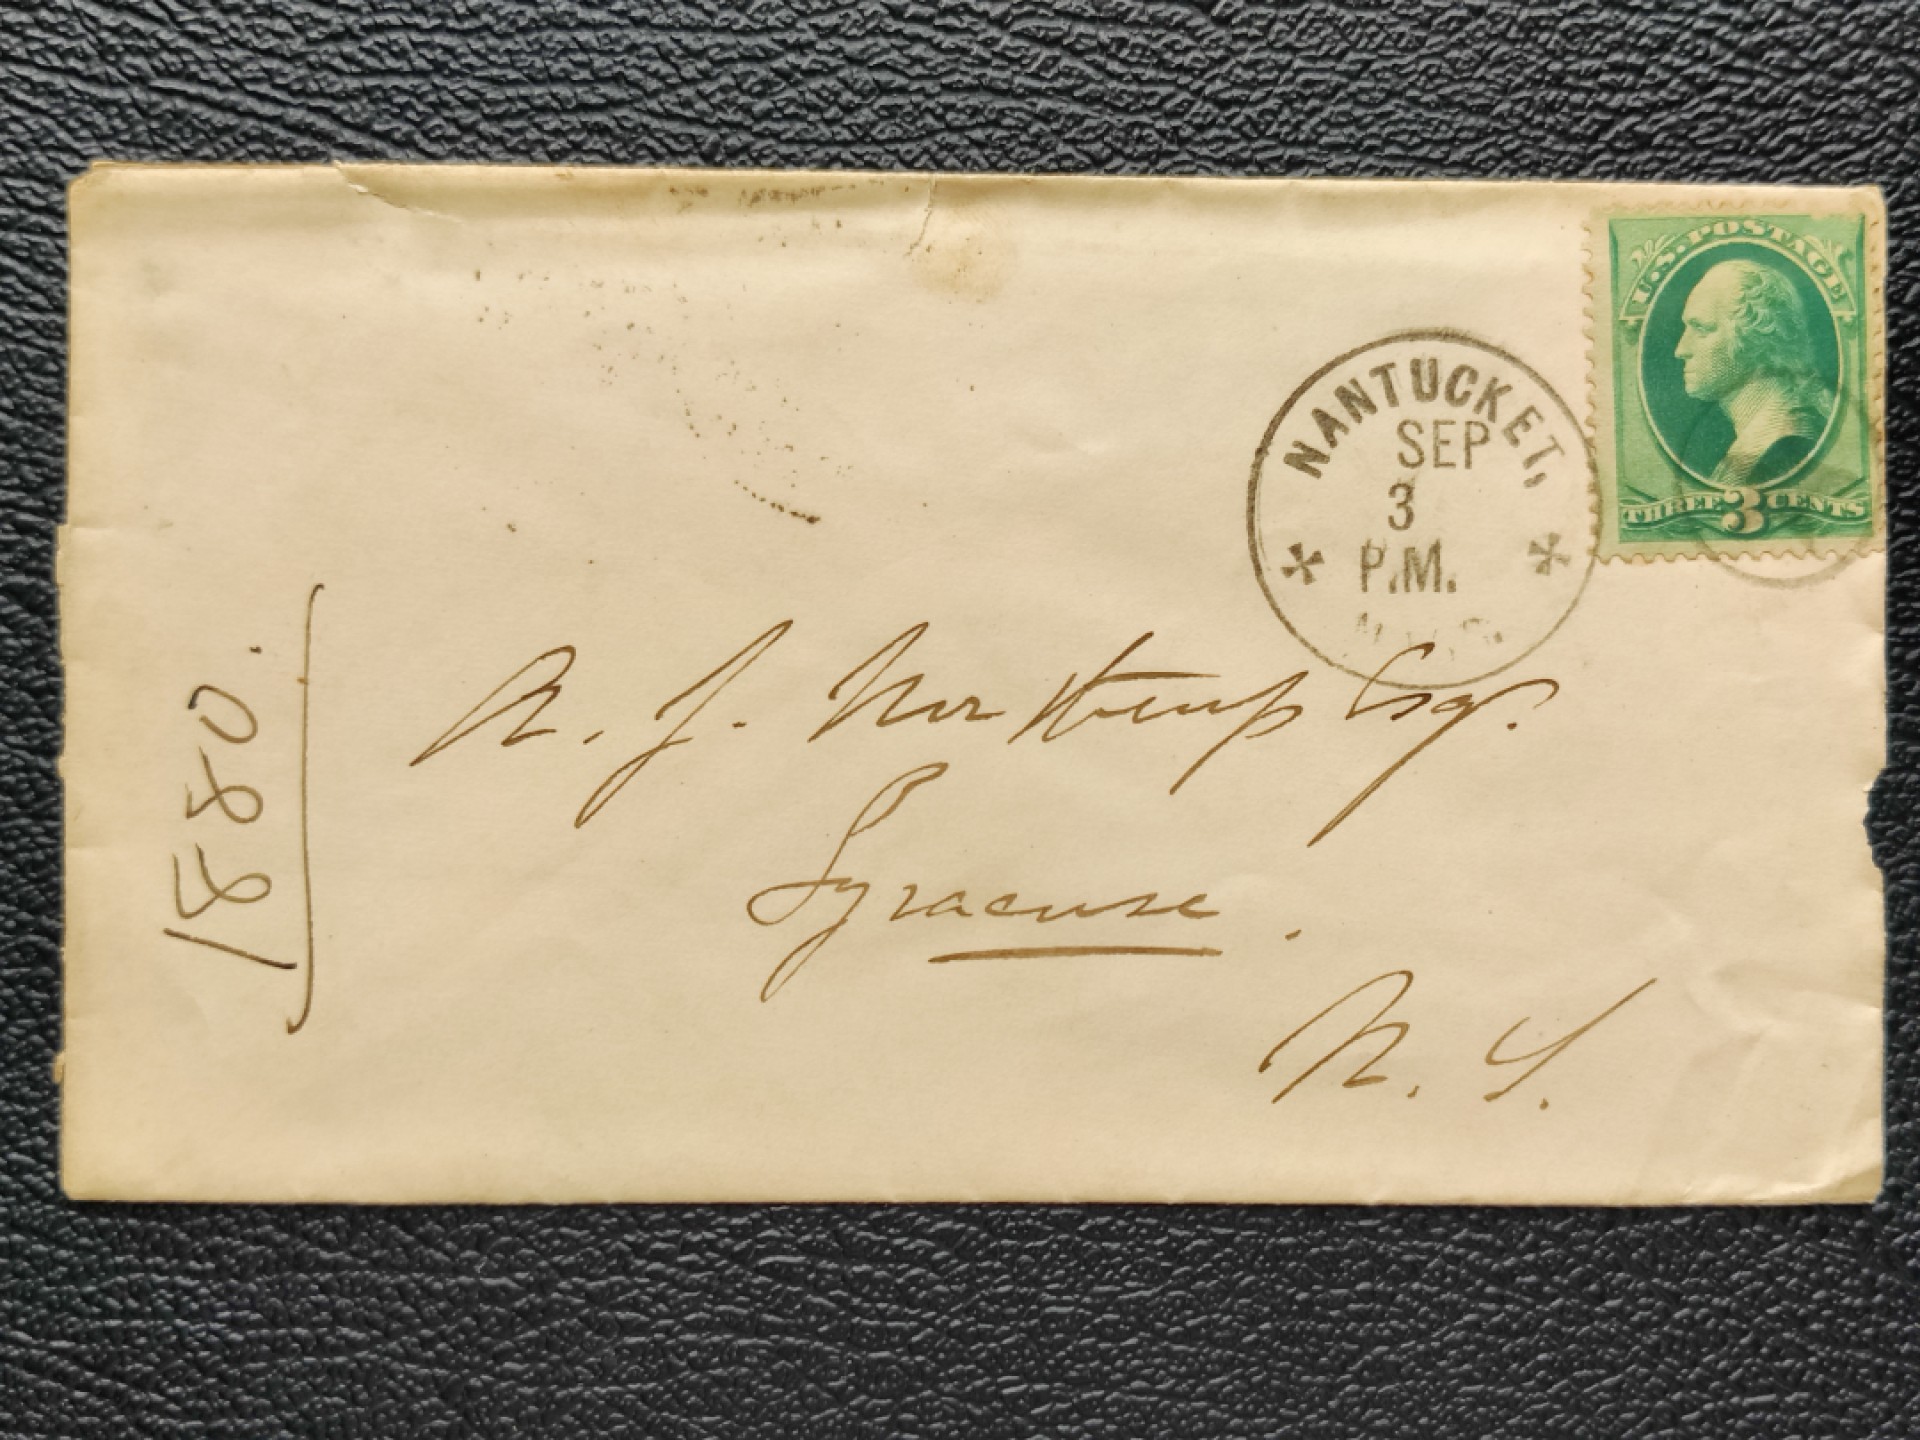 U.S. POSTAGE
THREE 3 CENTS
NANTUCKET,
SEP
3
P.M.
1880.
N. J. Northrup Esq.
Syracuse.
N. Y.